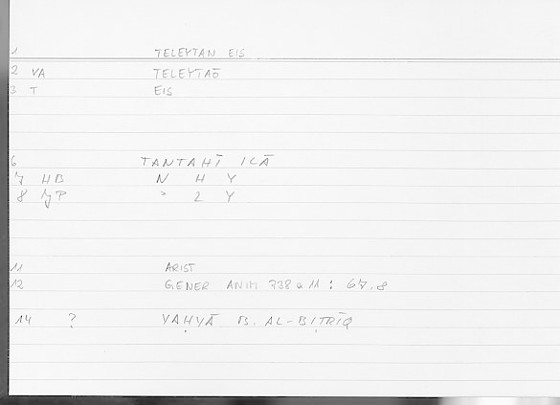 1 TELEYTAN EIS
2 VA TELEYTAŌ
3 T EIS
6 TANTAHĪ ILĀ
7 HB N H Y
8 " 2 Y
11 ARIST
12 GENER ANIM 738 a 11 : 67.8
14 ? YAḤYĀ B. AL-BIṬRĪQ